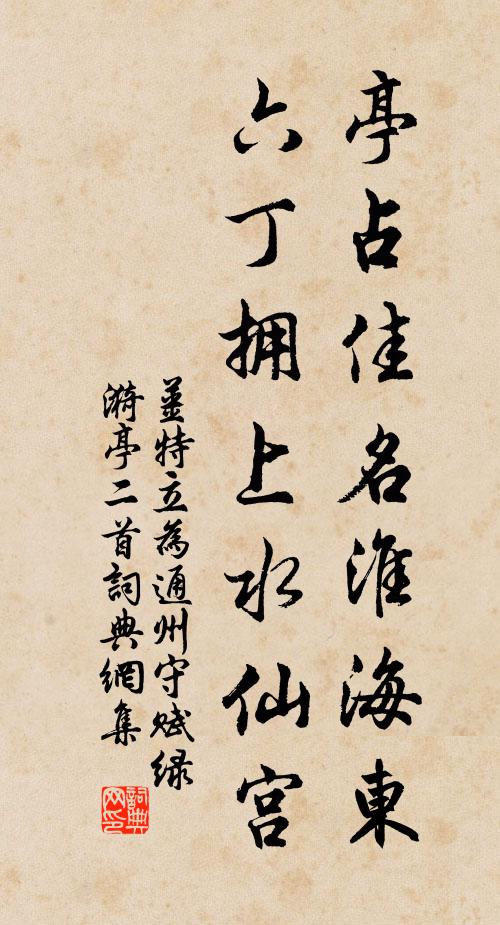 亭占佳名淮海東
六丁拥上水仙宫
姜特立為通州守赋绿
漪亭二首詞典網集
詞典網印